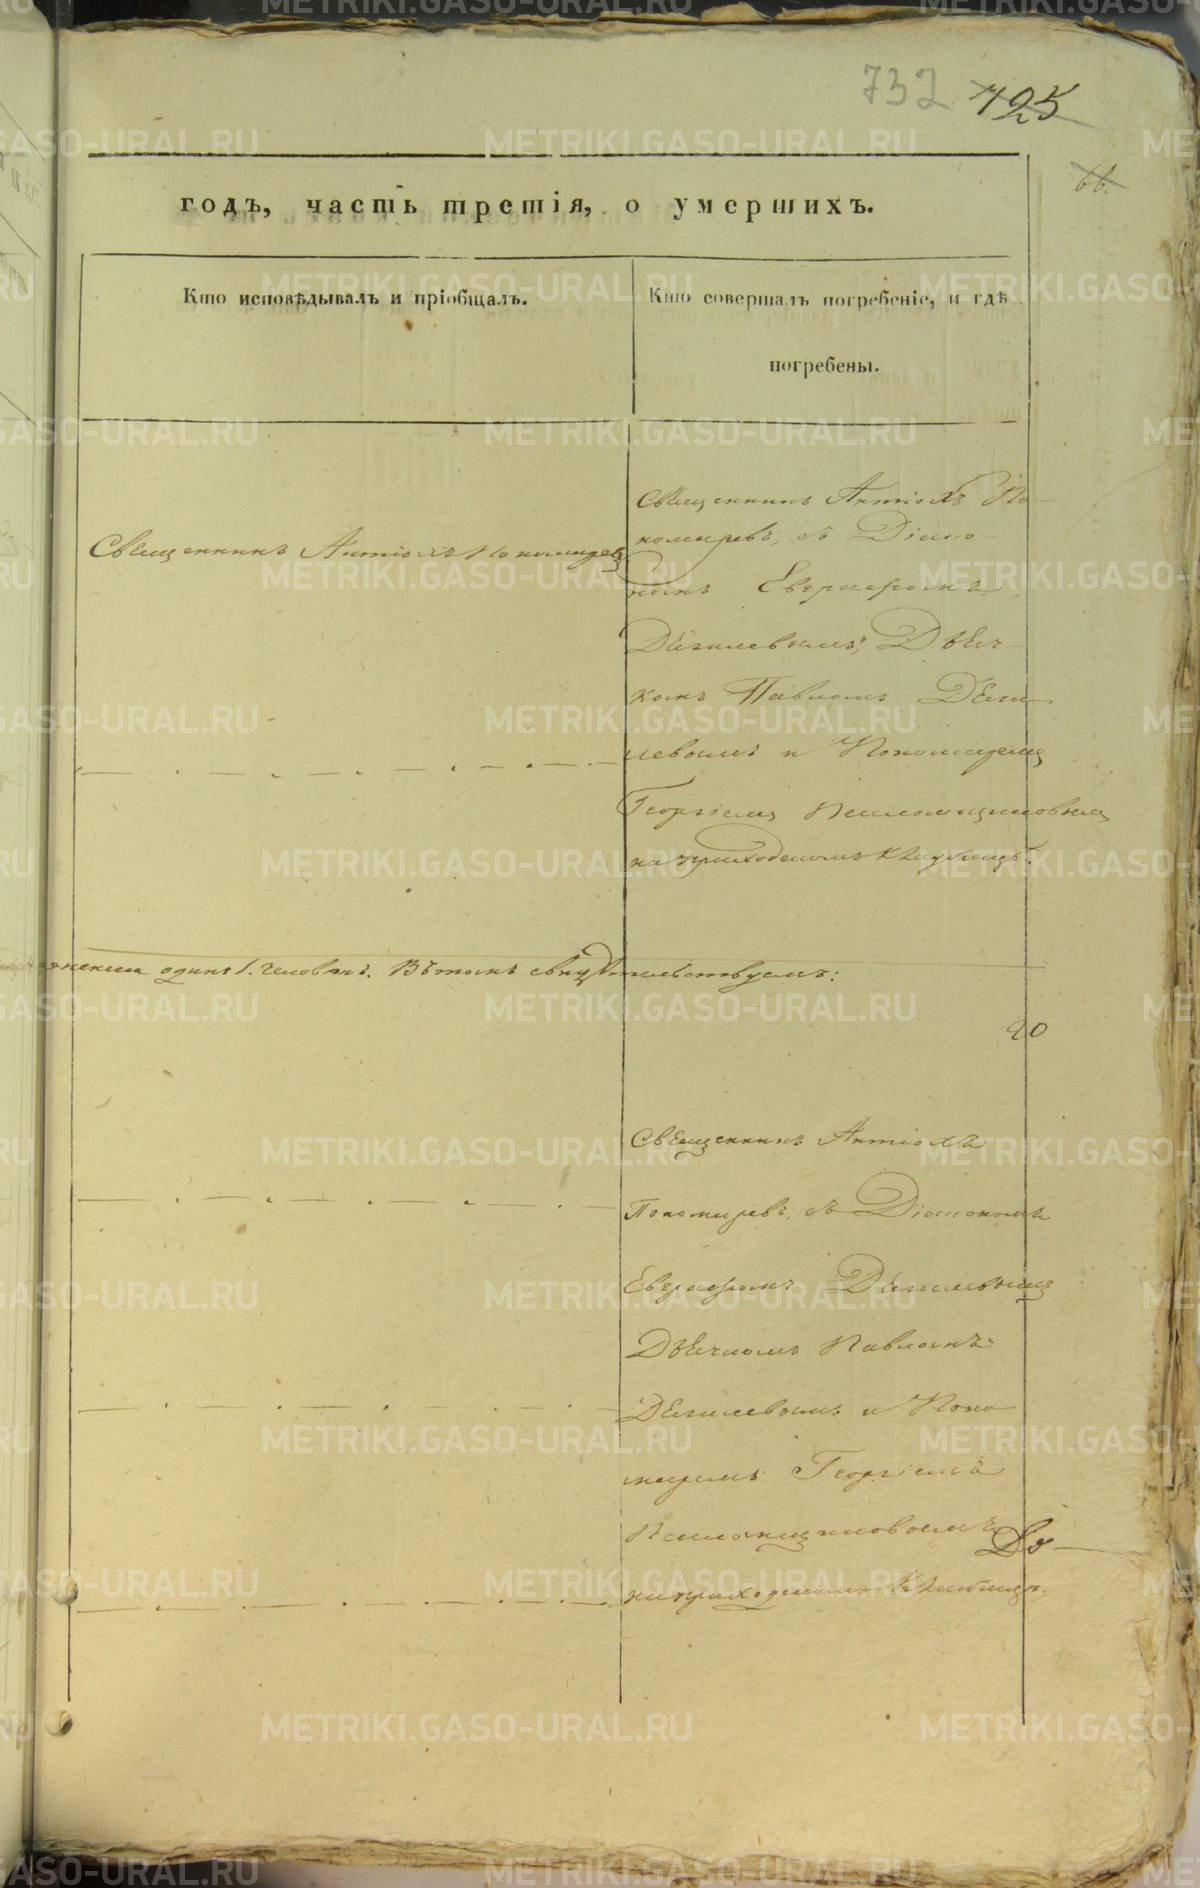 732 725
66.
годъ, часть третія, о умершихъ.
Кто исповѣдывалъ и пріобщалъ.
Кто совершалъ погребеніе, и гдѣ
погребены.
Священникъ Антіохъ Пономаревъ
Священникъ Антіохъ По-
номаревъ, съ Діако-
номъ Евграфомъ
Дягилевымъ, Дьяч-
комъ Павломъ Дяги-
левымъ и Пономаремъ
Георгіемъ
на приходскомъ кладбищѣ.
одинъ 1. человѣкъ. Въ томъ свидѣтельствуемъ:
20
Священникъ Антіохъ
Пономаревъ, съ Діакономъ
Евграфомъ Дягилевымъ
Дьячкомъ Павломъ
Дягилевымъ и Поно
маремъ Георгіемъ
на приходскомъ кладбищѣ.
METRIKI.GASO-URAL.RU